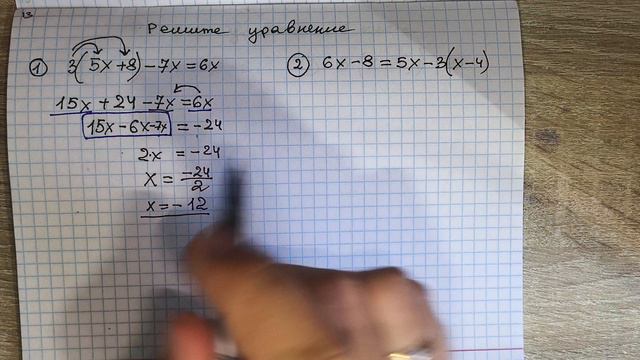 13
Решите уравнение
① 3(5x+8)-7x=6x
15x+24-7x=6x
15x-6x-7x=-24
2·x=-24
x=-24/2
x=-12
② 6x-8=5x-3(x-4)